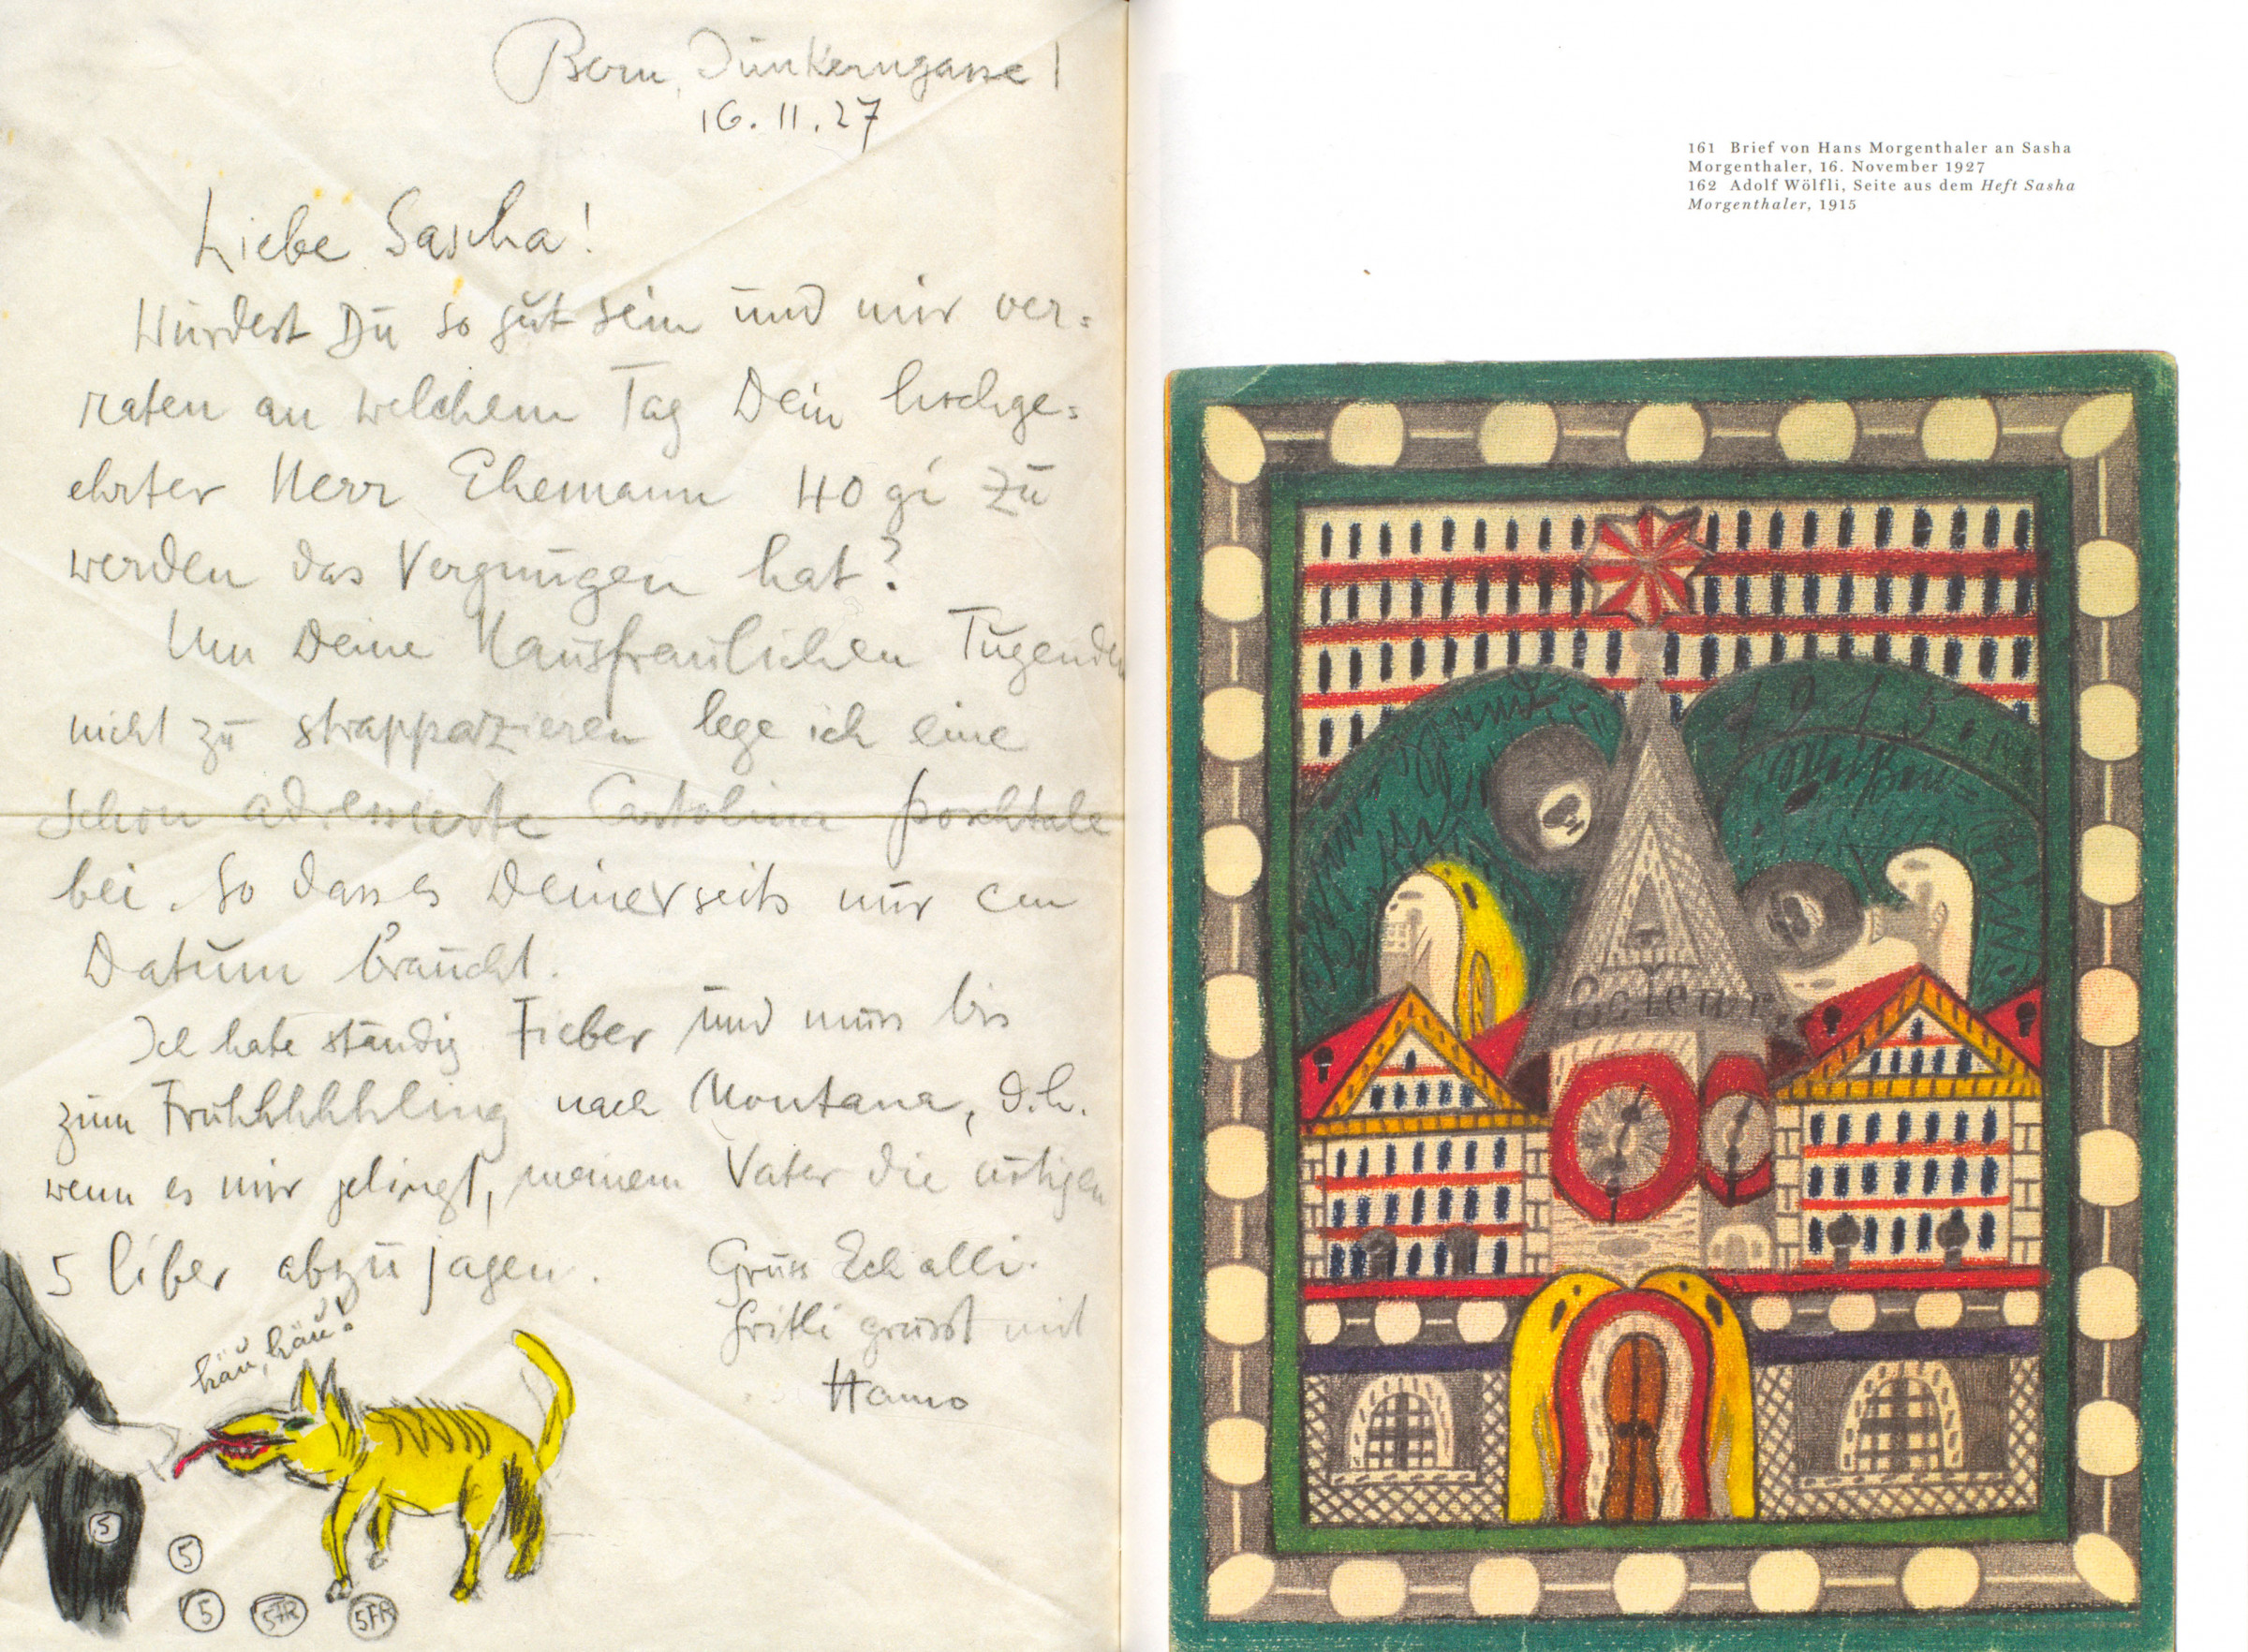 Bern, Junkerngasse 1
16.11.27
Liebe Sascha!
Würdest Du so gut sein und mir ver=
raten an welchem Tag Dein hochge=
ehrter Herr Ehemann 40gi zu
werden das Vergnügen hat?
Um Deine Hausfraulichen Tugenden
nicht zu strappazieren lege ich eine
schon adressierte Cartolina poschtale
bei. So dass es Deinerseits nur ein
Datum braucht.
Ich habe ständig Fieber und muss bis
zum Frühhhhhling nach Montana, d.h.
wenn es mir gelingt, meinem Vater die nötigen
5 liber abzujagen.
Gruss Ech alli.
Fritli grüsst mit
Hamo
häu, häu!
5
5
5
5FR
5FR
161 Brief von Hans Morgenthaler an Sasha
Morgenthaler, 16. November 1927
162 Adolf Wölfli, Seite aus dem Heft Sasha
Morgenthaler, 1915
1915.